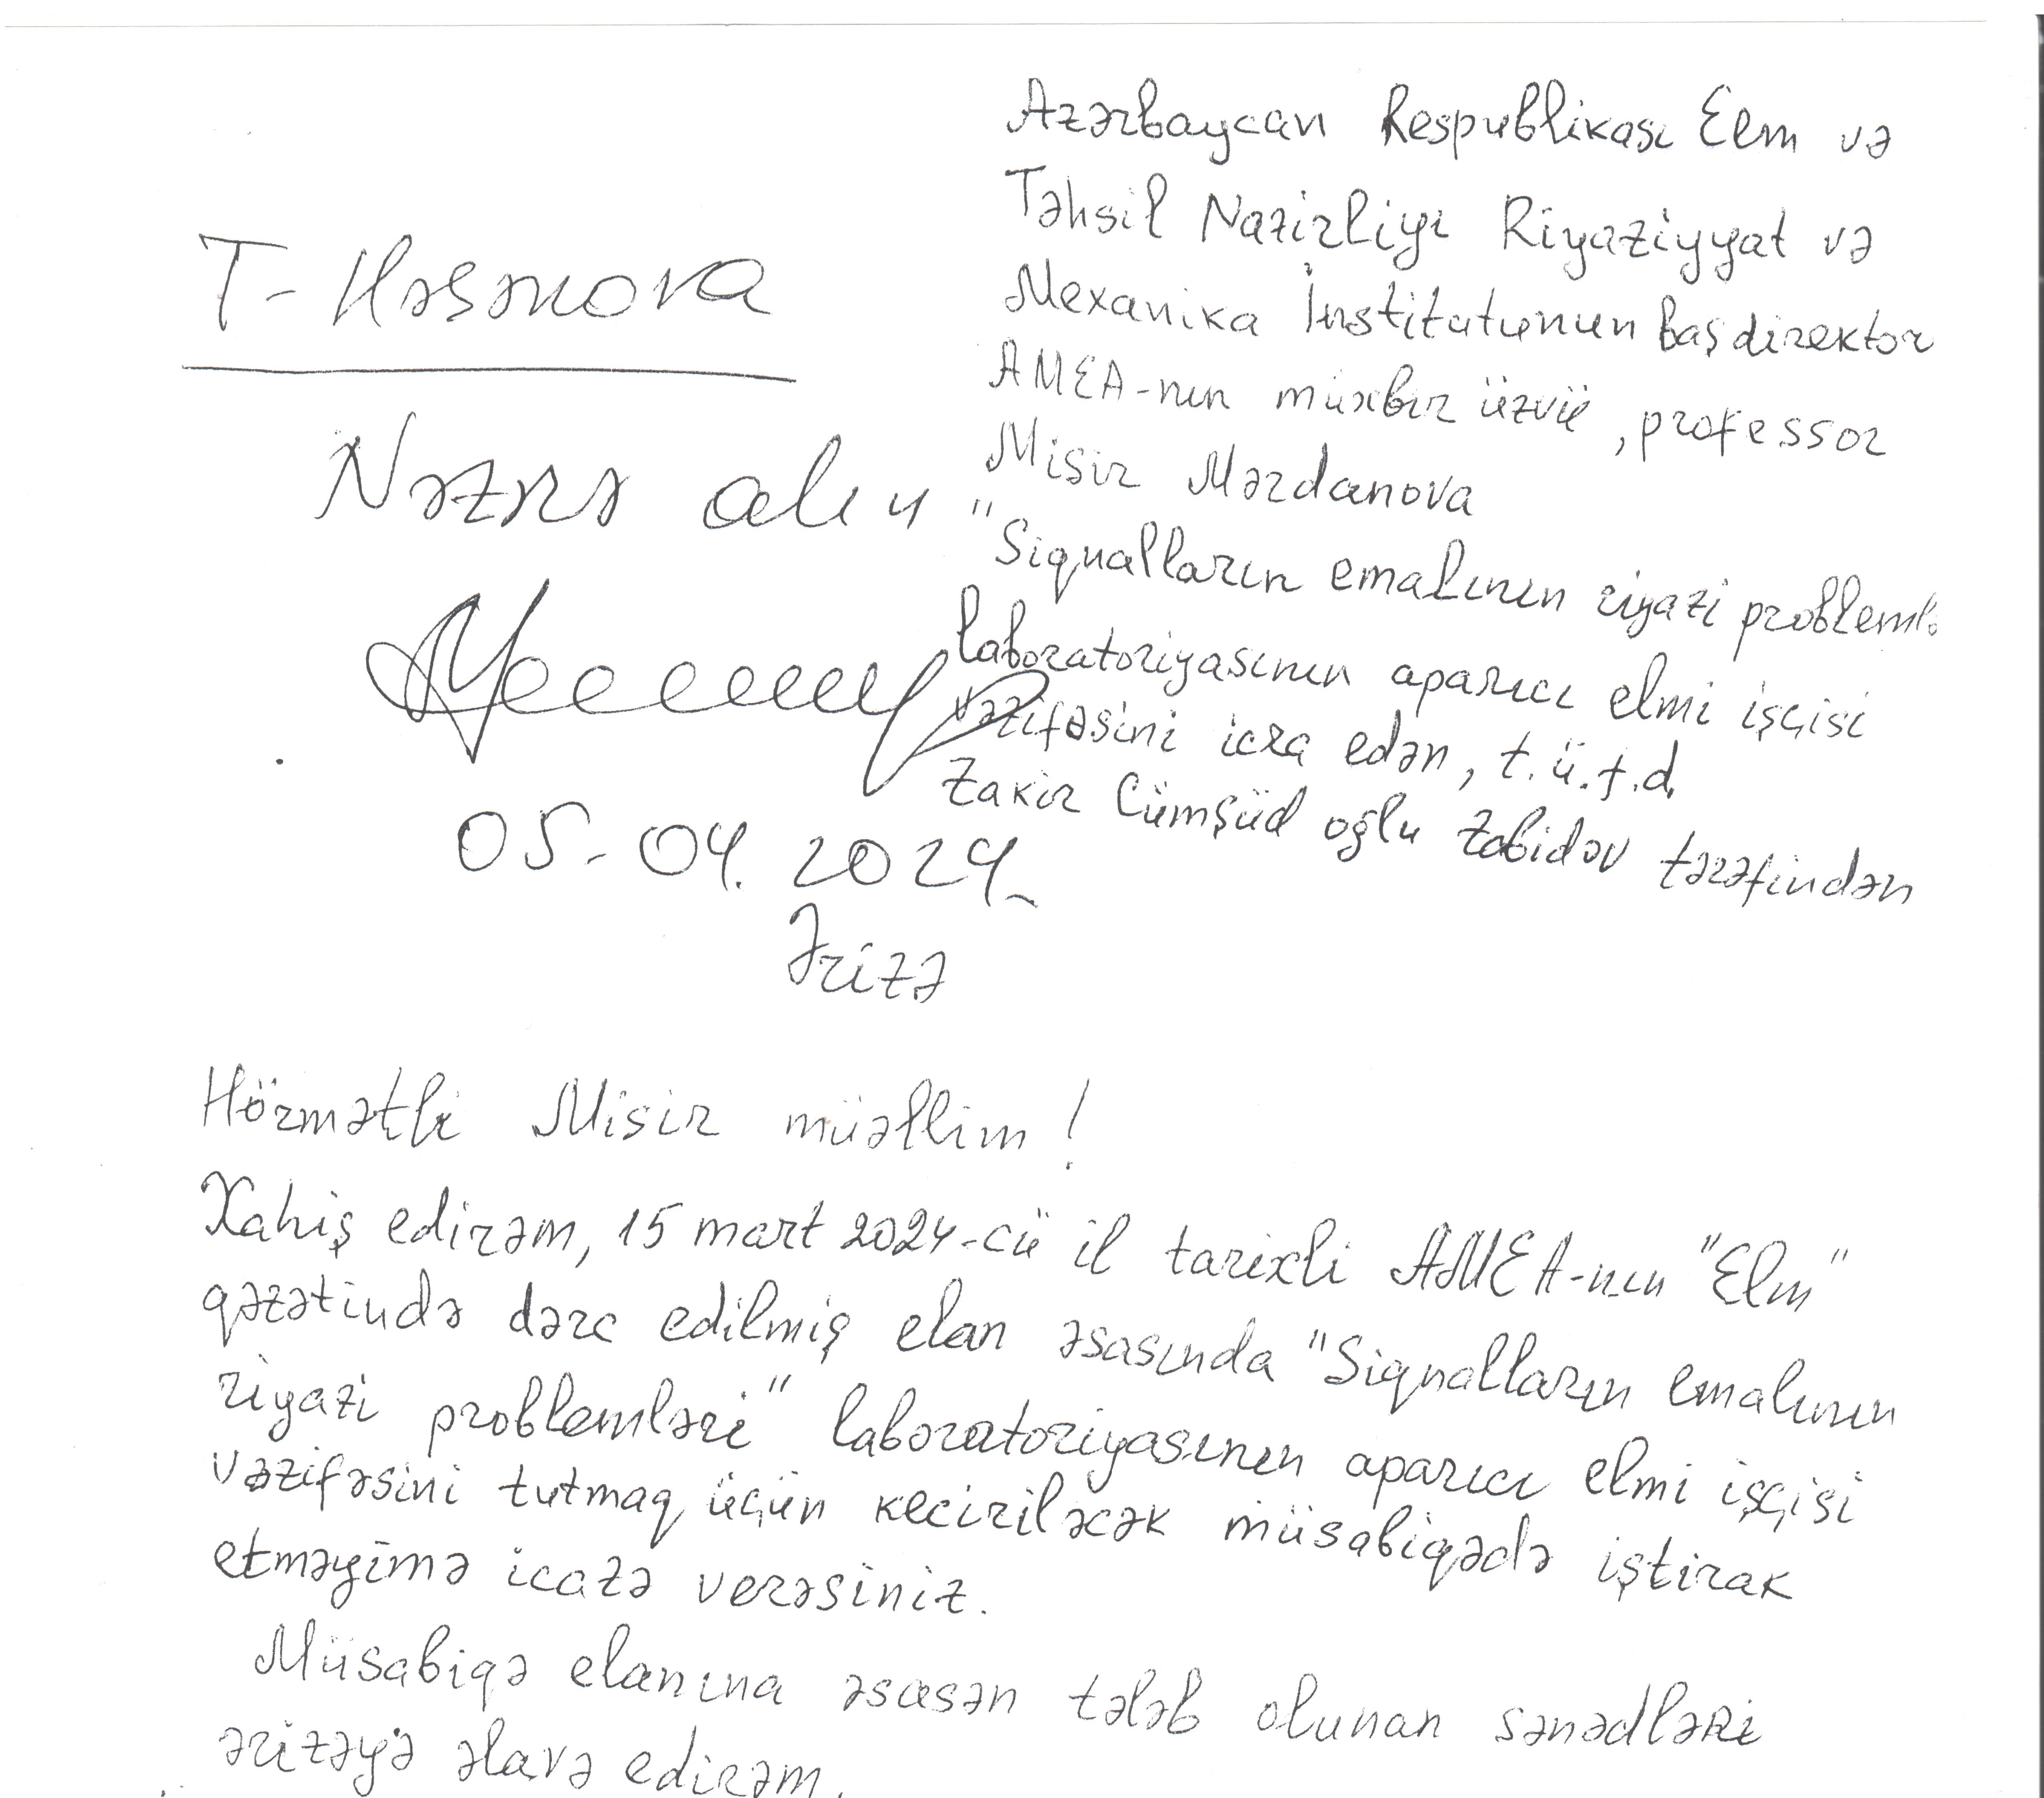 Azərbaycan Respublikası Elm və
Təhsil Nazirliyi Riyaziyyat və
Mexanika İnstitutunun Baş direktor
AMEA-nın müxbir üzvü, professor
Misir Mərdanova
"Siqnalların emalının riyazi probleml
laboratoriyasının aparıcı elmi işçisi
vəzifəsini icra edən, t.ü.f.d.
Zakir Cümşüd oğlu Zabidov tərəfindən
T. Həsənova
Nəzərə alın
05.04.2024
Ərizə
Hörmətli Misir müəllim!
Xahiş edirəm, 15 mart 2024-cü il tarixli AMEA-nın "Elm"
qəzətində dərc edilmiş elan əsasında "Siqnalların emalının
riyazi problemləri" laboratoriyasının aparıcı elmi işçisi
vəzifəsini tutmaq üçün keciriləcək müsabiqədə iştirak
etməyimə icazə verəsiniz.
Müsabiqə elanına əsasən tələb olunan sənədləri
ərizəyə əlavə edirəm.